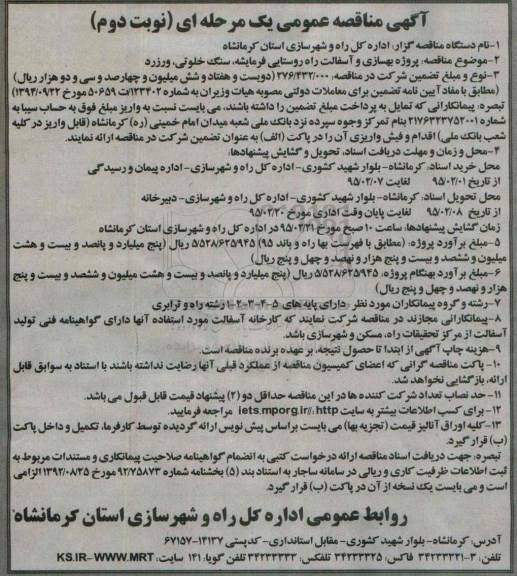 آگهی مناقصه عمومی یک مرحله ای (نوبت دوم)
۱-نام دستگاه مناقصه گزار: اداره کل راه و شهرسازی استان کرمانشاه
۲-موضوع مناقصه: پروژه بهسازی و آسفالت راه روستایی فرمایشه، سنگ خلوتی، ورزرد
۳-نوع و مبلغ تضمین شرکت در مناقصه: ۲۷۶/۴۳۲/۰۰۰ (دویست و هفتاد و شش میلیون و چهارصد و سی و دو هزار ریال)
(مطابق با مفاد آیین نامه تضمین برای معاملات دولتی مصوبه هیات وزیران به شماره ۱۲۳۴۰۲/ت ۵۰۶۵۹ مورخ ۱۳۹۴/۰۹/۲۲)
تبصره: پیمانکارانی که تمایل به پرداخت مبلغ تضمین را داشته باشند، می بایست نسبت به واریز مبلغ فوق به حساب سیبا به
شماره ۲۱۷۶۳۲۳۷۵۲۰۰۱ بنام تمرکز وجوه سپرده نزد بانک ملی شعبه میدان امام خمینی (ره) کرمانشاه (قابل واریز در کلیه
شعب بانک ملی) اقدام و فیش واریزی آن را در پاکت (الف) به عنوان تضمین شرکت در مناقصه ارائه نمایند.
۴-محل و زمان و مهلت دریافت اسناد، تحویل و گشایش پیشنهادها:
محل خرید اسناد: کرمانشاه- بلوار شهید کشوری- اداره کل راه و شهرسازی-اداره پیمان و رسیدگی
از تاریخ ۹۵/۰۲/۰۱ لغایت ۹۵/۰۲/۰۷
محل تحویل اسناد: کرمانشاه- بلوار شهید کشوری- اداره کل راه و شهرسازی- دبیرخانه
از تاریخ ۹۵/۰۲/۰۸ لغایت پایان وقت اداری مورخ ۹۵/۰۲/۲۰
زمان گشایش پیشنهادها: ساعت ۱۰ صبح مورخ ۹۵/۰۲/۲۱ در اداره کل راه و شهرسازی استان کرمانشاه
۵-مبلغ برآورد پروژه: (مطابق با فهرست بها راه و باند ۹۵) ۵/۵۲۸/۶۲۵/۹۴۵ ریال (پنج میلیارد و پانصد و بیست و هشت
میلیون و ششصد و بیست و پنج هزار و نهصد و چهل و پنج ریال)
۶-مبلغ برآورد بهنگام پروژه: ۵/۵۲۸/۶۲۵/۹۴۵ ریال (پنج میلیارد و پانصد و بیست و هشت میلیون و ششصد و بیست و پنج
هزار و نهصد و چهل و پنج ریال)
۷-رشته و گروه پیمانکاران مورد نظر دارای پایه های ۵-۴-۳-۲-۱ رشته راه و ترابری
۸-پیمانکارانی مجازند در مناقصه شرکت نمایند که کارخانه آسفالت مورد استفاده آنها دارای گواهینامه فنی تولید
آسفالت از مرکز تحقیقات راه، مسکن و شهرسازی باشد.
۹-هزینه چاپ آگهی از ابتدا تا حصول نتیجه، بر عهده برنده مناقصه است.
۱۰- پاکت مناقصه گرانی که اعضای کمیسیون مناقصه از عملکرد قبلی آنها رضایت نداشته باشند با استناد به سوابق قابل
ارائه، بازگشایی نخواهد شد.
۱۱- حد نصاب تعداد شرکت کننده ها در این مناقصه حداقل دو (۲) پیشنهاد قیمت قابل قبول می باشد.
۱۲-برای کسب اطلاعات بیشتر به سایت http://iets.mporg.ir مراجعه فرمایید.
۱۳-کلیه اوراق آنالیز قیمت (تجزیه بها) می بایست براساس پیش نویس ارائه گردیده توسط کارفرما، تکمیل و داخل پاکت
(ب) قرار گیرد.
تبصره: جهت دریافت اسناد مناقصه ارائه درخواست کتبی به انضمام گواهینامه صلاحیت پیمانکاری و مستندات مربوط به
ثبت اطلاعات ظرفیت کاری و ریالی در سامانه ساجار به استناد بند (۵) بخشنامه شماره ۹۲/۷۵۸۷۳ مورخ ۱۳۹۲/۰۸/۲۵ الزامی
است و می بایست یک نسخه از آن در پاکت (ب) قرار گیرد.
روابط عمومی اداره کل راه و شهرسازی استان کرمانشاه
آدرس: کرمانشاه- بلوار شهید کشوری- مقابل استانداری- کدپستی ۱۴۱۳۷-۶۷۱۵۷
تلفن: ۳-۳۴۲۳۳۲۲۱ فاکس: ۳۴۲۳۳۲۲۵ تلفکس: ۳۴۲۳۳۲۳۳ تلفن گویا: ۱۴۱ سایت: KS.IR- WWW.MRT